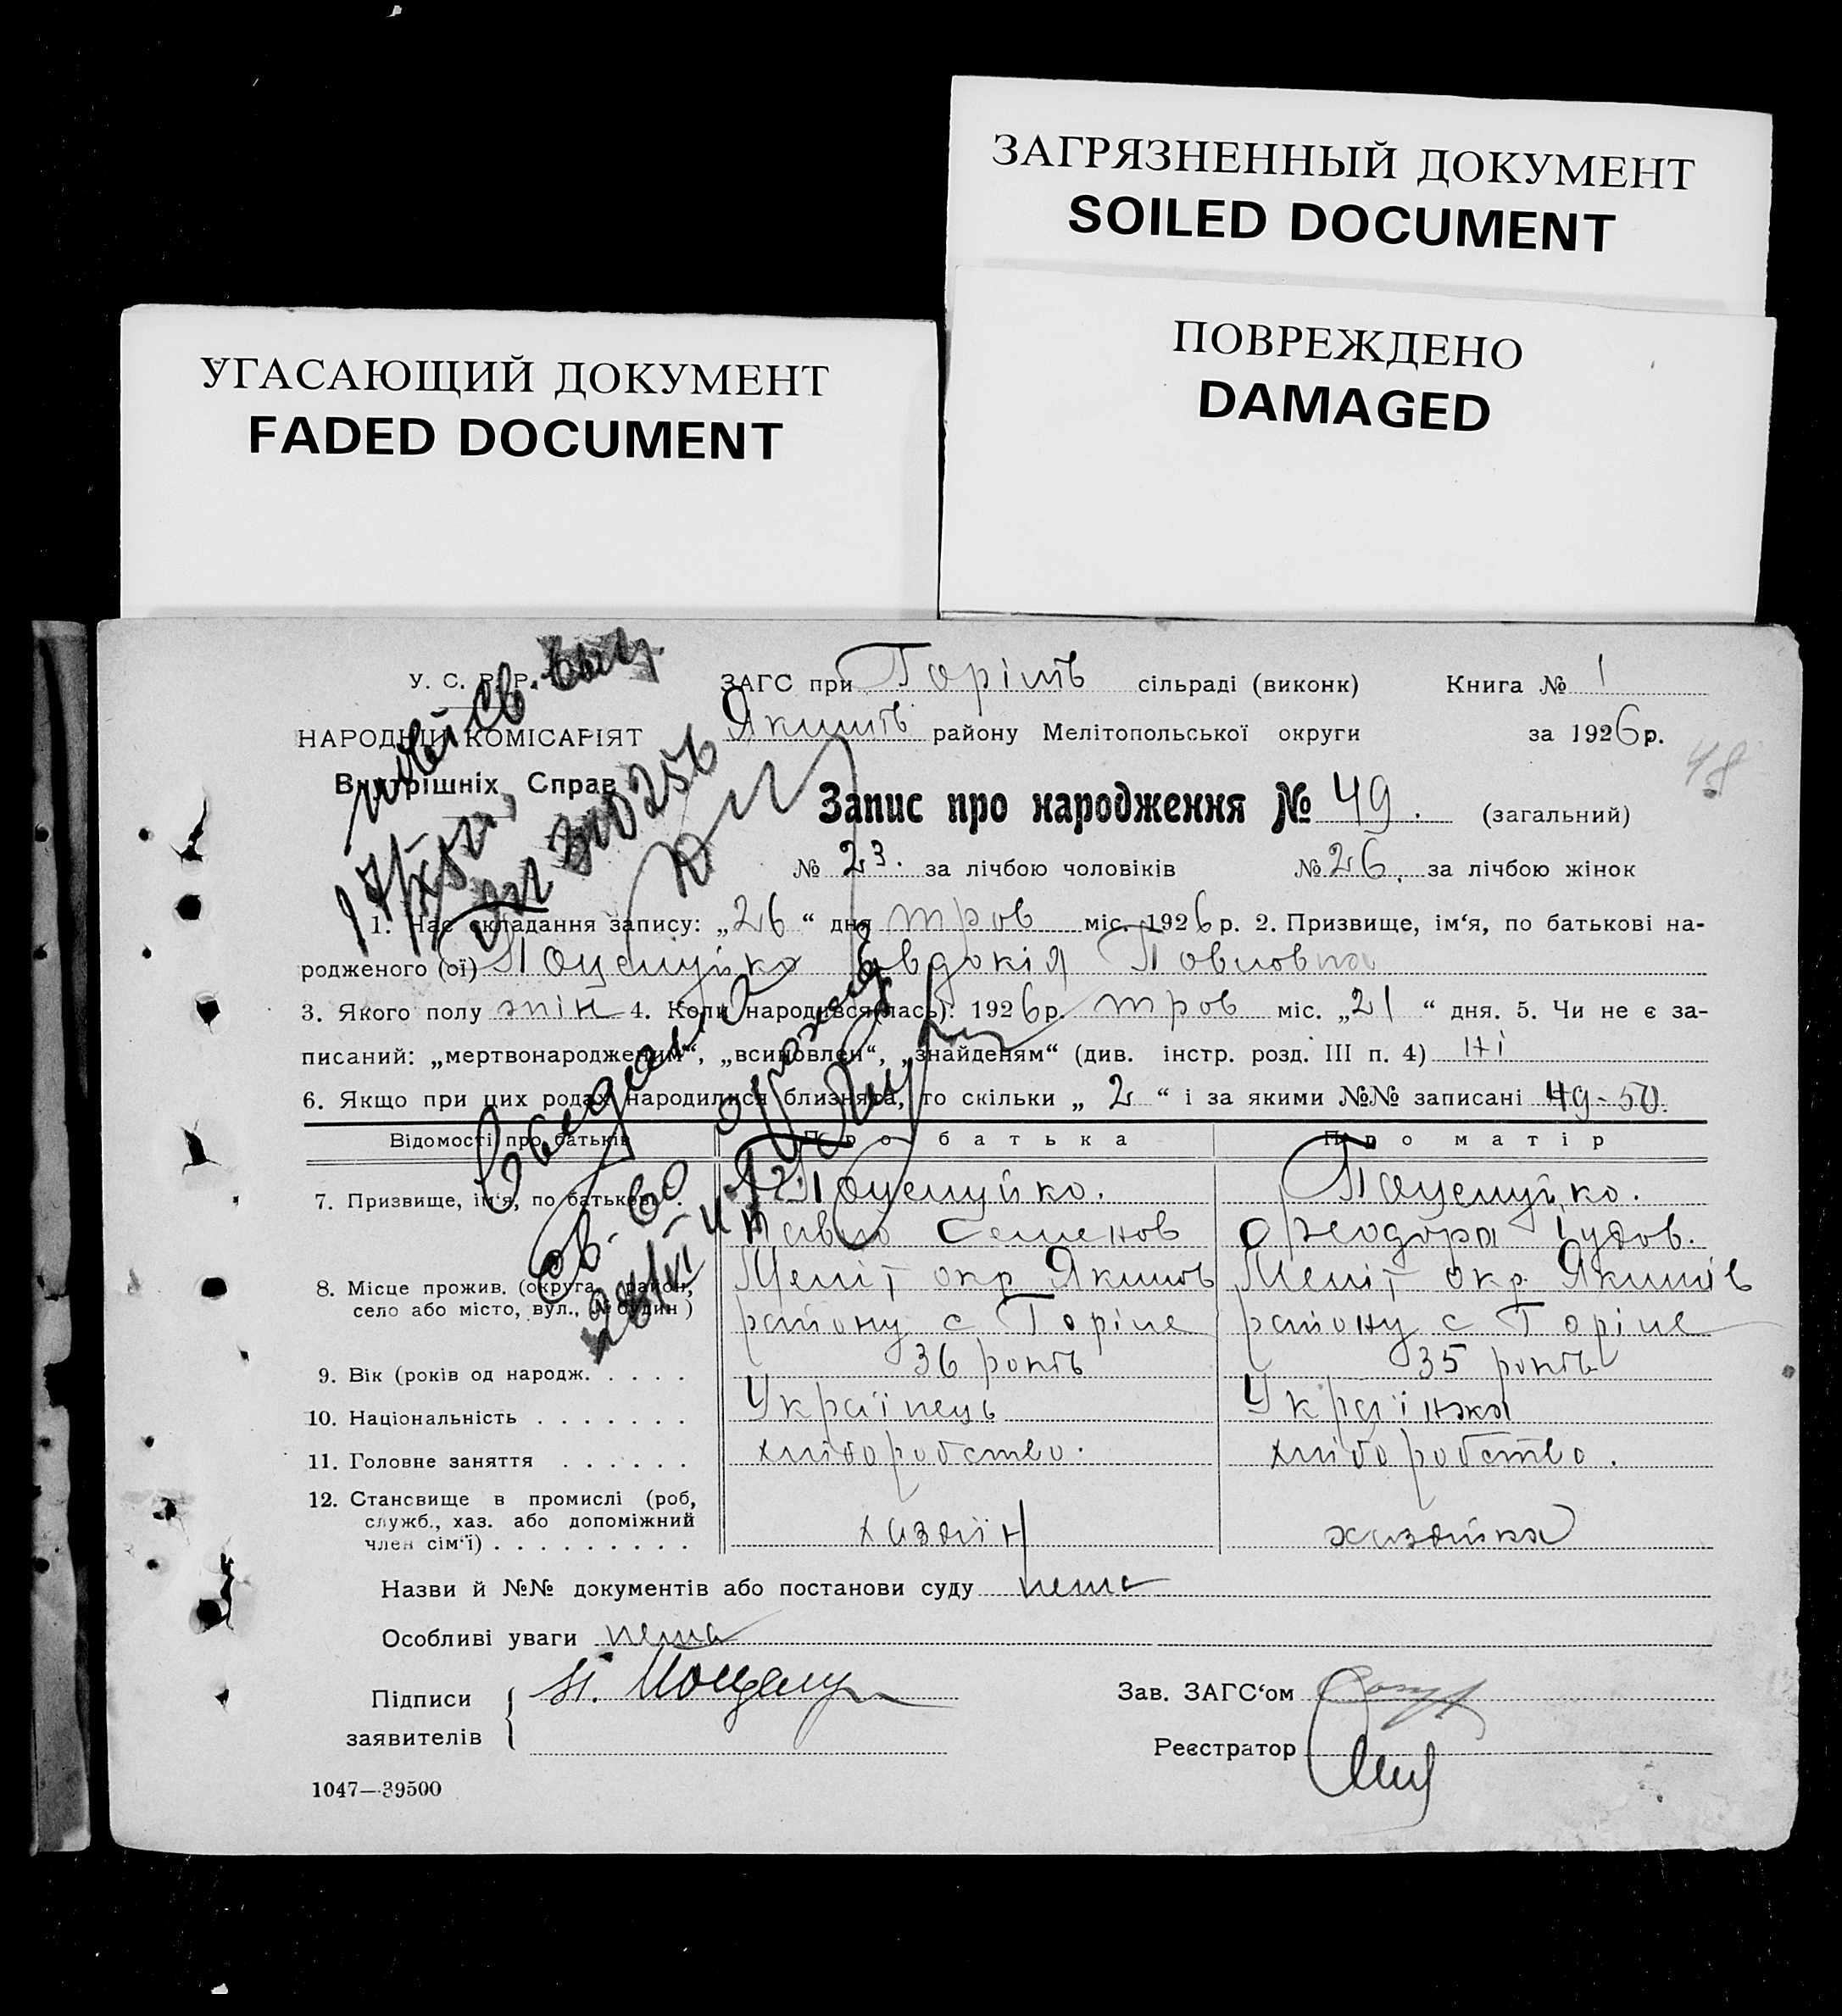 ЗАГРЯЗНЕННЫЙ ДОКУМЕНТ
SOILED DOCUMENT
ПОВРЕЖДЕНО
DAMAGED
УГАСАЮЩИЙ ДОКУМЕНТ
FADED DOCUMENT
У. С. Р. Р.
НАРОДНІЙ КОМІСАРІЯТ
Внутрішніх Справ
ЗАГС при Горілів сільраді (виконк) Книга № 1
Якимів району Мелітопольської округи за 1926 р.
48
Запис про народження № 49. (загальний)
№ 23. за лічбою чоловіків № 26. за лічбою жінок
1. Час складання запису: „26“ дня трав міс. 1926 р. 2. Призвище, ім‘я, по батькові на-
родженого (ої) Евдокія Павловна
3. Якого полу жін 4. Коли народився(лась): 1926 р. трав міс. „21“ дня. 5. Чи не є за-
писаний: „мертвонародженим“, „всиновлен“, „знайденям“ (див. інстр. розд. III п. 4) Ні
6. Якщо при цих родах народилися близнята, то скільки „2“ і за якими №№ записані 49-50.
Відомості про батьків Про батька Про матір
7. Призвище, ім‘я, по батькові
Павло Семенов
8. Місце прожив. (округа, район, Меліт окр Якимів Меліт окр. Якимів
село або місто, вул., № будин) району с Горіле району с Горіле
9. Вік (років од народж. 36 років 35 років
10. Національність Українець Українка
11. Головне заняття хліборобство. хліборобство.
12. Становище в промислі (роб,
служб., хаз. або допоміжний
член сім‘ї) хазяїн хазяйка
Назви й №№ документів або постанови суду нема
Особливі уваги нема
Підписи
заявителів
Зав. ЗАГС‘ом
Реєстратор
1047—39500